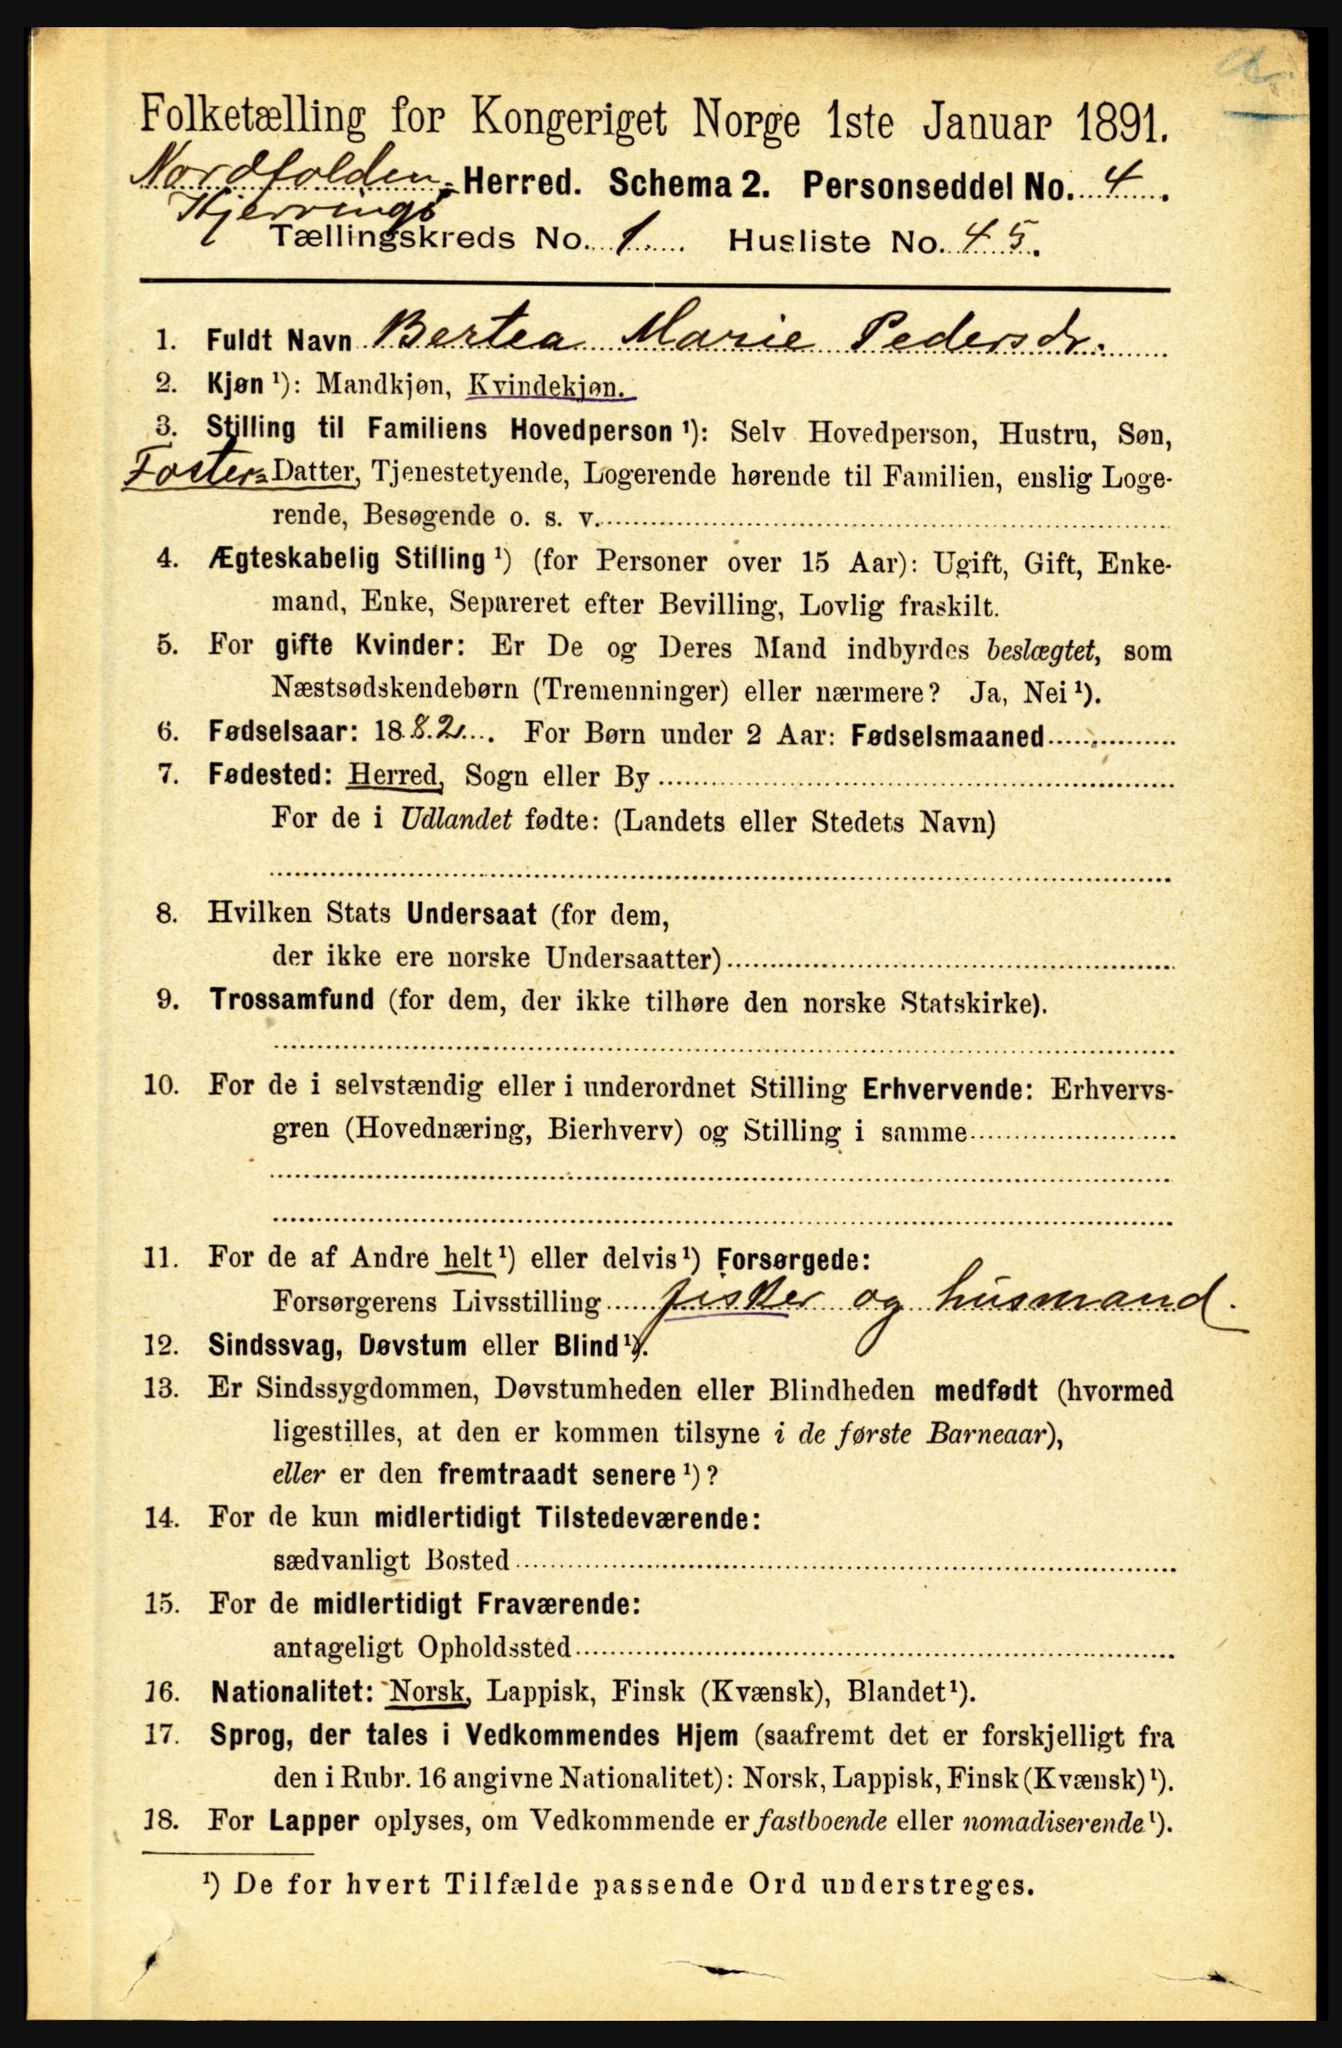 Folketælling for Kongeriget Norge 1ste Januar 1891.
Nordfolden- Herred. Schema 2. Personseddel No. 4.
Kjerringø
Tællingskreds No. 1. Husliste No. 45.
1. Fuldt Navn Bertea Marie Pedersdr.
2. Kjøn ¹): Mandkjøn, Kvindekjøn.
3. Stilling til Familiens Hovedperson ¹): Selv Hovedperson, Hustru, Søn,
Foster= Datter, Tjenestetyende, Logerende hørende til Familien, enslig Loge-
rende, Besøgende o. s. v.
4. Ægteskabelig Stilling ¹) (for Personer over 15 Aar): Ugift, Gift, Enke-
mand, Enke, Separeret efter Bevilling, Lovlig fraskilt.
5. For gifte Kvinder: Er De og Deres Mand indbyrdes beslægtet, som
Næstsødskendebørn (Tremenninger) eller nærmere? Ja, Nei ¹).
6. Fødselsaar: 1882. For Børn under 2 Aar: Fødselsmaaned
7. Fødested: Herred, Sogn eller By
For de i Udlandet fødte: (Landets eller Stedets Navn)
8. Hvilken Stats Undersaat (for dem,
der ikke ere norske Undersaatter)
9. Trossamfund (for dem, der ikke tilhøre den norske Statskirke).
10. For de i selvstændig eller i underordnet Stilling Erhvervende: Erhvervs-
gren (Hovednæring, Bierhverv) og Stilling i samme
11. For de af Andre helt ¹) eller delvis ¹) Forsørgede:
Forsørgerens Livsstilling fisker og husmand.
12. Sindssvag, Døvstum eller Blind ¹).
13. Er Sindssygdommen, Døvstumheden eller Blindheden medfødt (hvormed
ligestilles, at den er kommen tilsyne i de første Barneaar),
eller er den fremtraadt senere ¹)?
14. For de kun midlertidigt Tilstedeværende:
sædvanligt Bosted
15. For de midlertidigt Fraværende:
antageligt Opholdssted
16. Nationalitet: Norsk, Lappisk, Finsk (Kvænsk), Blandet ¹).
17. Sprog, der tales i Vedkommendes Hjem (saafremt det er forskjelligt fra
den i Rubr. 16 angivne Nationalitet): Norsk, Lappisk, Finsk (Kvænsk) ¹).
18. For Lapper oplyses, om Vedkommende er fastboende eller nomadiserende ¹).
¹) De for hvert Tilfælde passende Ord understreges.